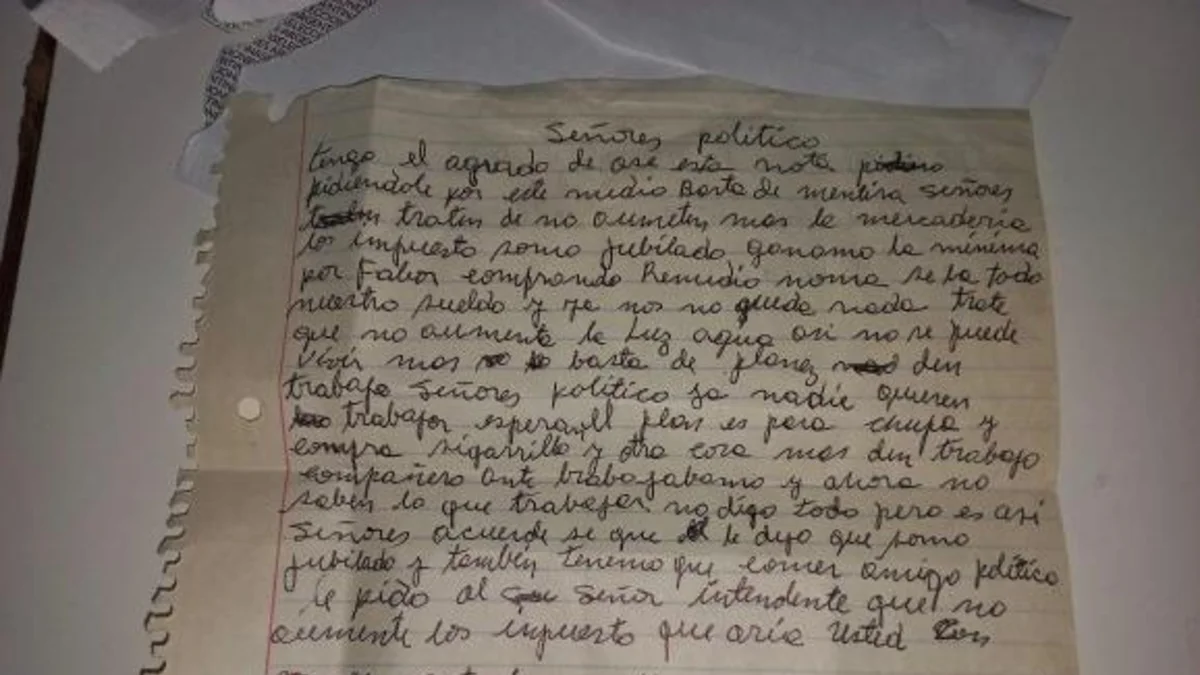 Señores politico
tengo el agrado de ase esta nota
pidiendole por este medio Basta de mentira señores
traten de no aumeten mas la mercaderia
los impuesto somo jubilado ganamo la menema
por Fabor comprando Remedio noma se ba todo
nuestro sueldo y ya nos no queda nada trate
que no aumenta la Luz agua asi no se puede
vivir mas basta de planez den
trabajo Señores politico ya nadie queren
trabajar esperan el plan es para chupa y
compra sigarrillo y otra cosa mas den trabajo
compañero ante trabajabamo y ahora no
saben lo que trabajar no digo todo pero es asi
Señores acuerde se que le dijo que somo
jubilado y tambien tenemo que comer amigo politico
le pido al Señor intendente que no
aumente los inpuesto que aria Usted con